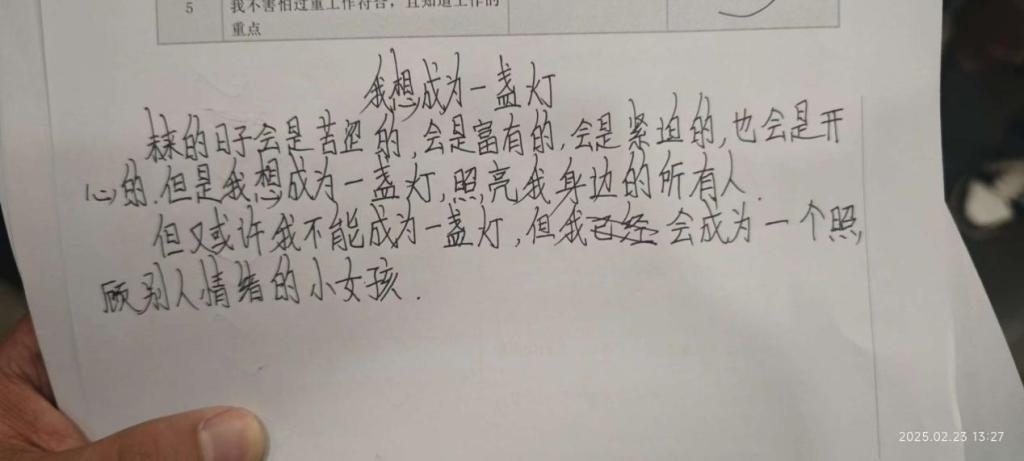 5 我不害怕过重工作符合，且知道工作的
重点
我想成为一盏灯
的日子会是苦涩的,会是富有的,会是紧迫的,也会是开
心的.但是我想成为一盏灯,照亮我身边的所有人.
但又或许我不能成为一盏灯,但我已经会成为一个照,
顾别人情绪的小女孩.
2025.02.23 13:27